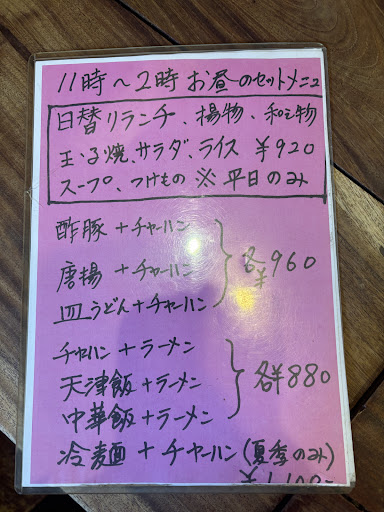 11時～2時 お昼のセットメニュ
日替りランチ、揚物、和え物
玉子焼、サラダ、ライス ¥920
スープ、つけもの ※平日のみ
酢豚+チャーハン
唐揚+チャーハン 各¥960
皿うどん+チャーハン
チャーハン+ラーメン
天津飯+ラーメン 各¥880
中華飯+ラーメン
冷麺+チャーハン(夏季のみ)
¥1,100-